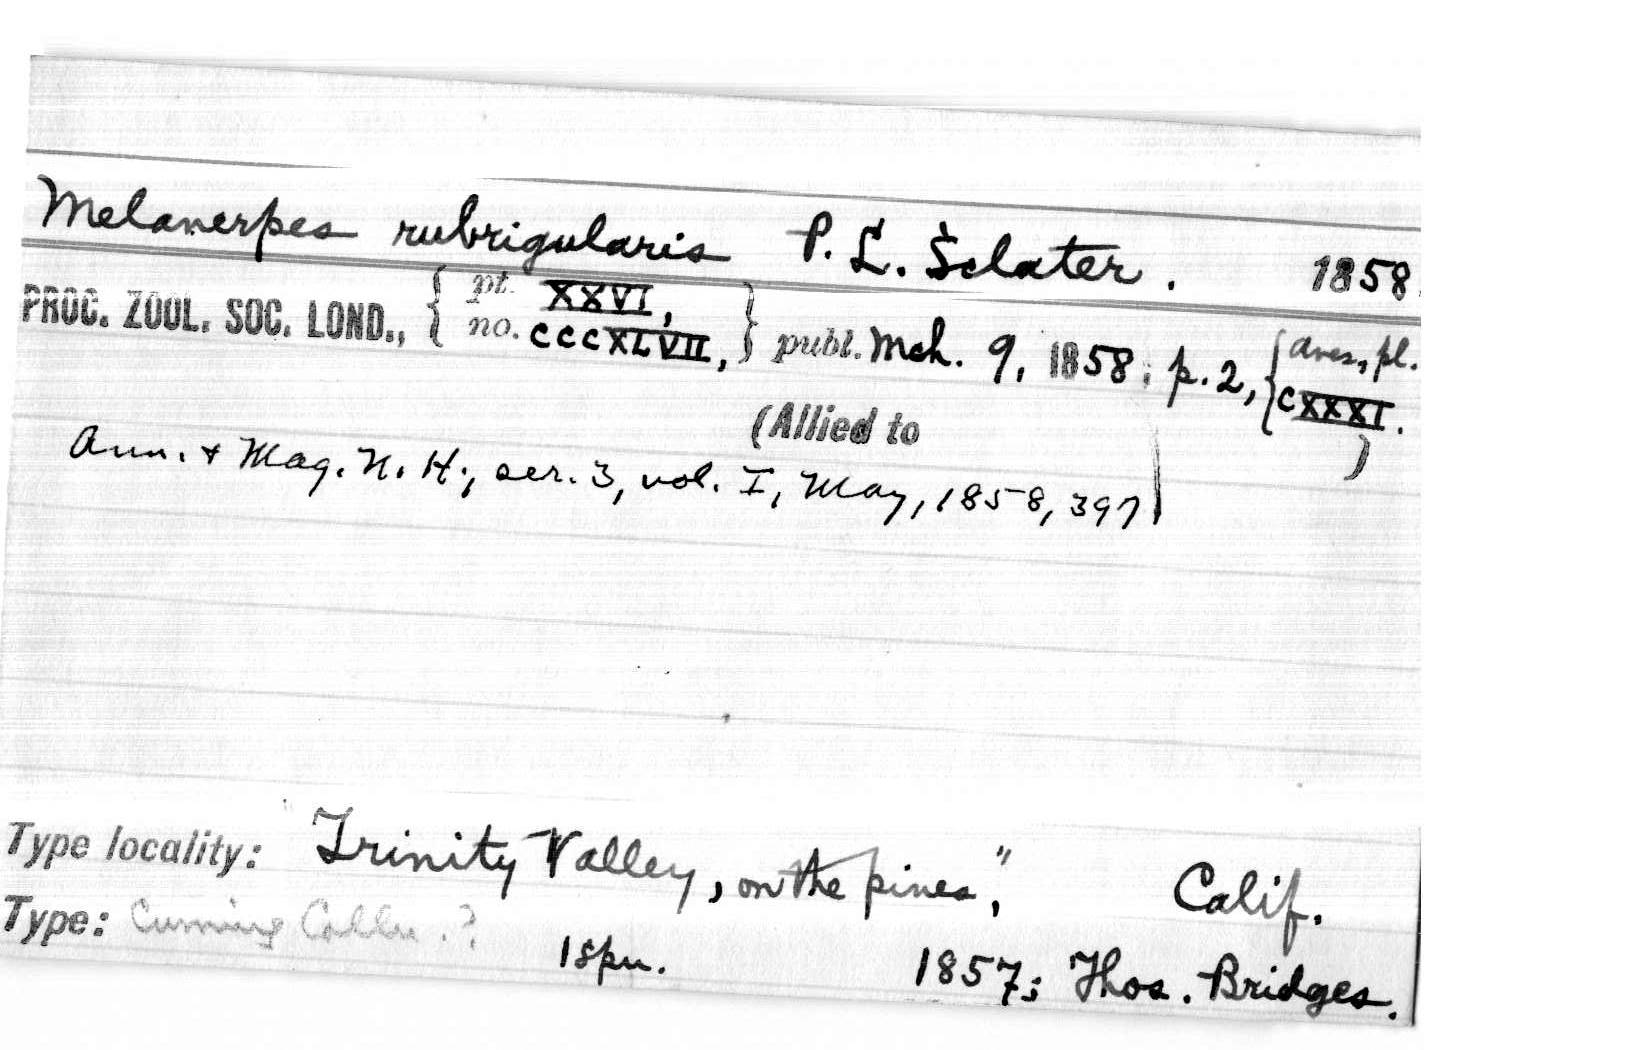 Melanerpes rubrigularis P. L. Sclater. 1858
PROC. ZOOL. SOC. LOND., { pt. XXVI, no. CCCXLVII, } publ. Mch. 9, 1858; p. 2, { Aves, pl. CXXXI. )
(Allied to
Ann. + Mag. N. H., ser. 3, vol. I, May, 1858, 397
Type locality: "Trinity Valley, on the pines," Calif.
Type: Cuming Colln. ?
1 spn. 1857; Thos. Bridges.